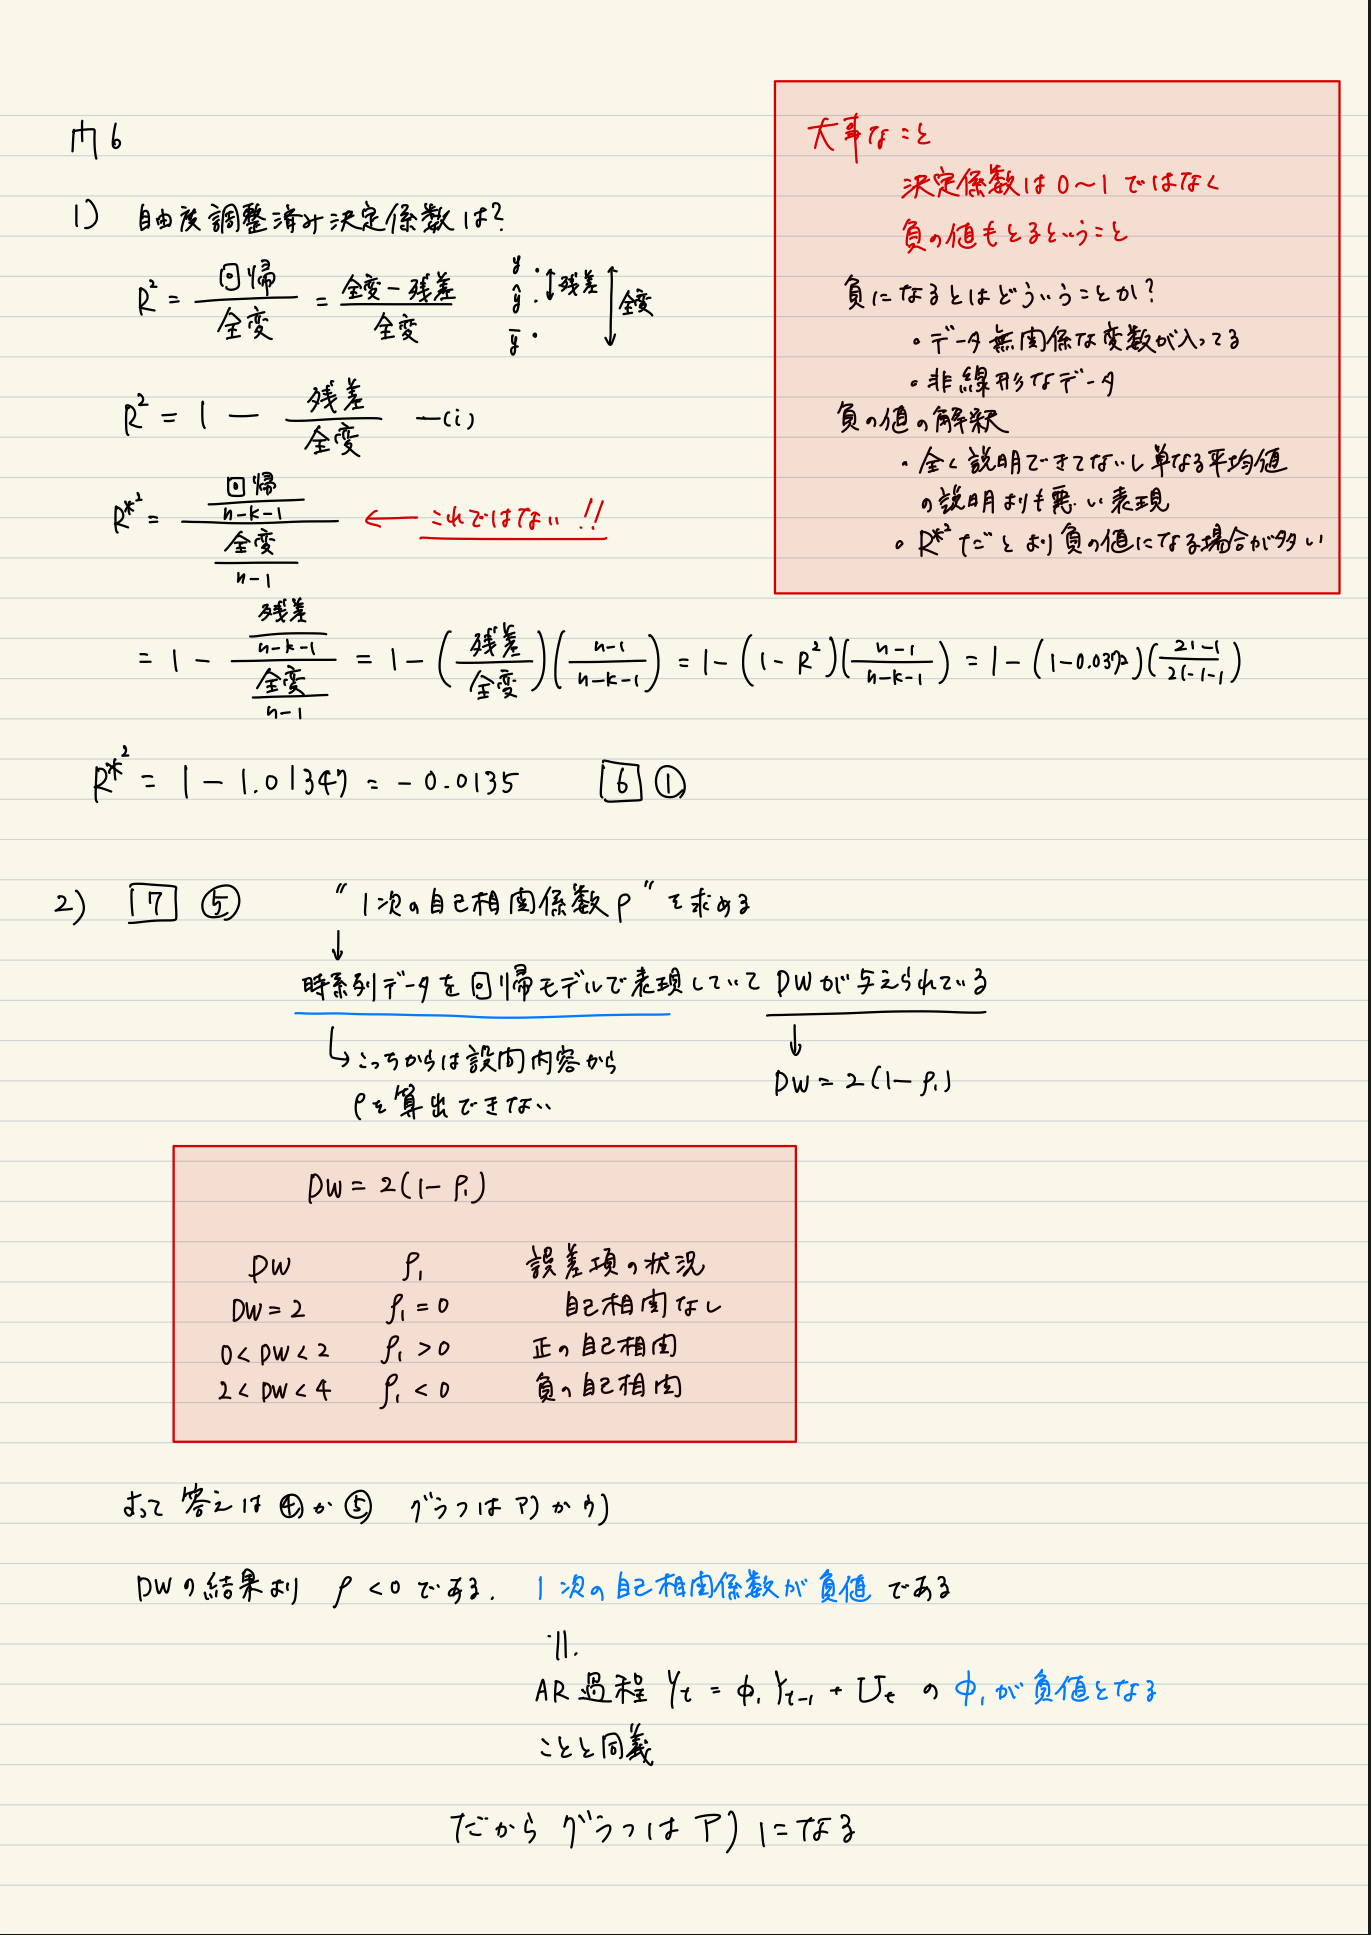 問6
1) 自由度調整済み決定係数は?
R² = 回帰/全変 = 全変-残差/全変
y ŷ ȳ 残差 全変
R² = 1 - 残差/全変 -(i)
R*² = (回帰/n-k-1)/(全変/n-1) ← これではない!!
= 1 - (残差/n-k-1)/(全変/n-1) = 1-(残差/全変)(n-1/n-k-1) = 1-(1-R²)(n-1/n-k-1) = 1-(1-0.0372)(21-1/21-1-1)
R*² = 1-1.01347 = -0.0135 6 ①
大事なこと
決定係数は0~1ではなく
負の値もとるということ
負になるとはどういうことか?
・データ無関係な変数が入ってる
・非線形なデータ
負の値の解釈
・全く説明できてないし単なる平均値
の説明よりも悪い表現
・R*²だとより負の値になる場合が多い
2) 17 ⑤ "1次の自己相関係数ρ"を求める
↓
時系列データを回帰モデルで表現していて DWが与えられている
↳こっちからは設問内容から
ρを算出できない
↓
DW = 2(1-ρ₁)
DW = 2(1-ρ₁)
DW ρ₁ 誤差項の状況
DW=2 ρ₁=0 自己相関なし
0<DW<2 ρ₁>0 正の自己相関
2<DW<4 ρ₁<0 負の自己相関
よって答えは④か⑤ グラフはア)かウ)
DWの結果より ρ<0である. 1次の自己相関係数が負値である
·||.
AR過程 Yt = φ₁Yt-1 + Ut の φ₁が負値となる
ことと同義
だからグラフはア)になる